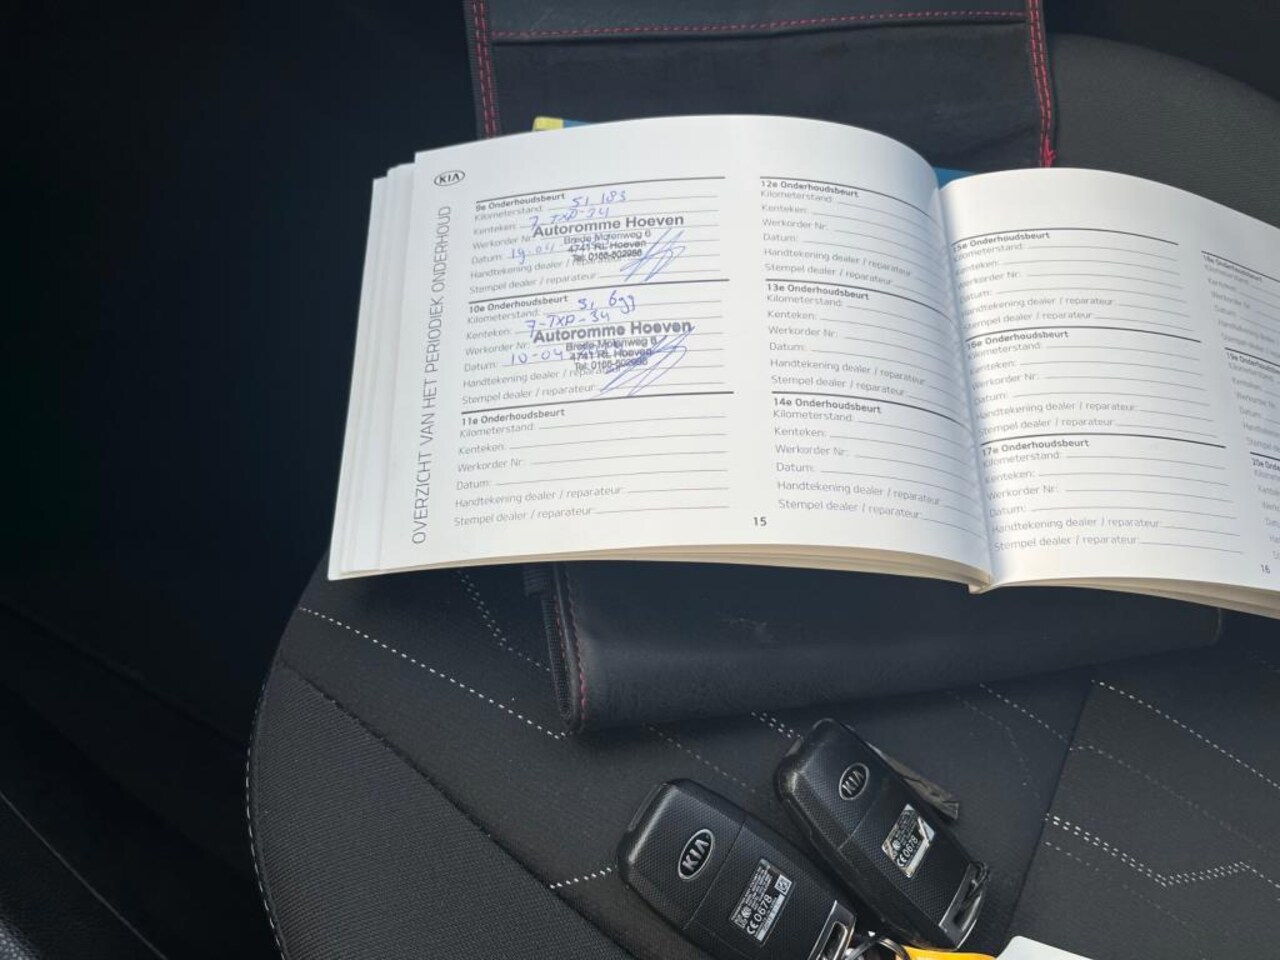 KIA
OVERZICHT VAN HET PERIODIEK ONDERHOUD
9e Onderhoudsbeurt
Kilometerstand: 51.183
Kenteken: 7-TXP-34
Werkorder Nr:
Autoromme Hoeven
Brede Molenweg 6
4741 RL Hoeven
Datum: 19-04
Handtekening dealer / reparateur:
Stempel dealer / reparateur:
10e Onderhoudsbeurt
Kilometerstand:
Kenteken: 7-TXP-34
Werkorder Nr:
Autoromme Hoeven
Brede Molenweg 6
4741 RL Hoeven
Datum: 10-04
Handtekening dealer / reparateur:
Stempel dealer / reparateur:
11e Onderhoudsbeurt
Kilometerstand:
Kenteken:
Werkorder Nr:
Datum:
Handtekening dealer / reparateur:
Stempel dealer / reparateur:
12e Onderhoudsbeurt
Kilometerstand:
Kenteken:
Werkorder Nr:
Datum:
Handtekening dealer / reparateur:
Stempel dealer / reparateur:
13e Onderhoudsbeurt
Kilometerstand:
Kenteken:
Werkorder Nr:
Datum:
Handtekening dealer / reparateur:
Stempel dealer / reparateur:
14e Onderhoudsbeurt
Kilometerstand:
Kenteken:
Werkorder Nr:
Datum:
Handtekening dealer / reparateur:
Stempel dealer / reparateur:
15
15e Onderhoudsbeurt
Kilometerstand:
Kenteken:
Werkorder Nr:
Datum:
Handtekening dealer / reparateur:
Stempel dealer / reparateur:
16e Onderhoudsbeurt
Kilometerstand:
Kenteken:
Werkorder Nr:
Datum:
Handtekening dealer / reparateur:
Stempel dealer / reparateur:
17e Onderhoudsbeurt
Kilometerstand:
Kenteken:
Werkorder Nr:
Datum:
Handtekening dealer / reparateur:
Stempel dealer / reparateur:
16
KIA
CE 0678
KIA
CE 0678